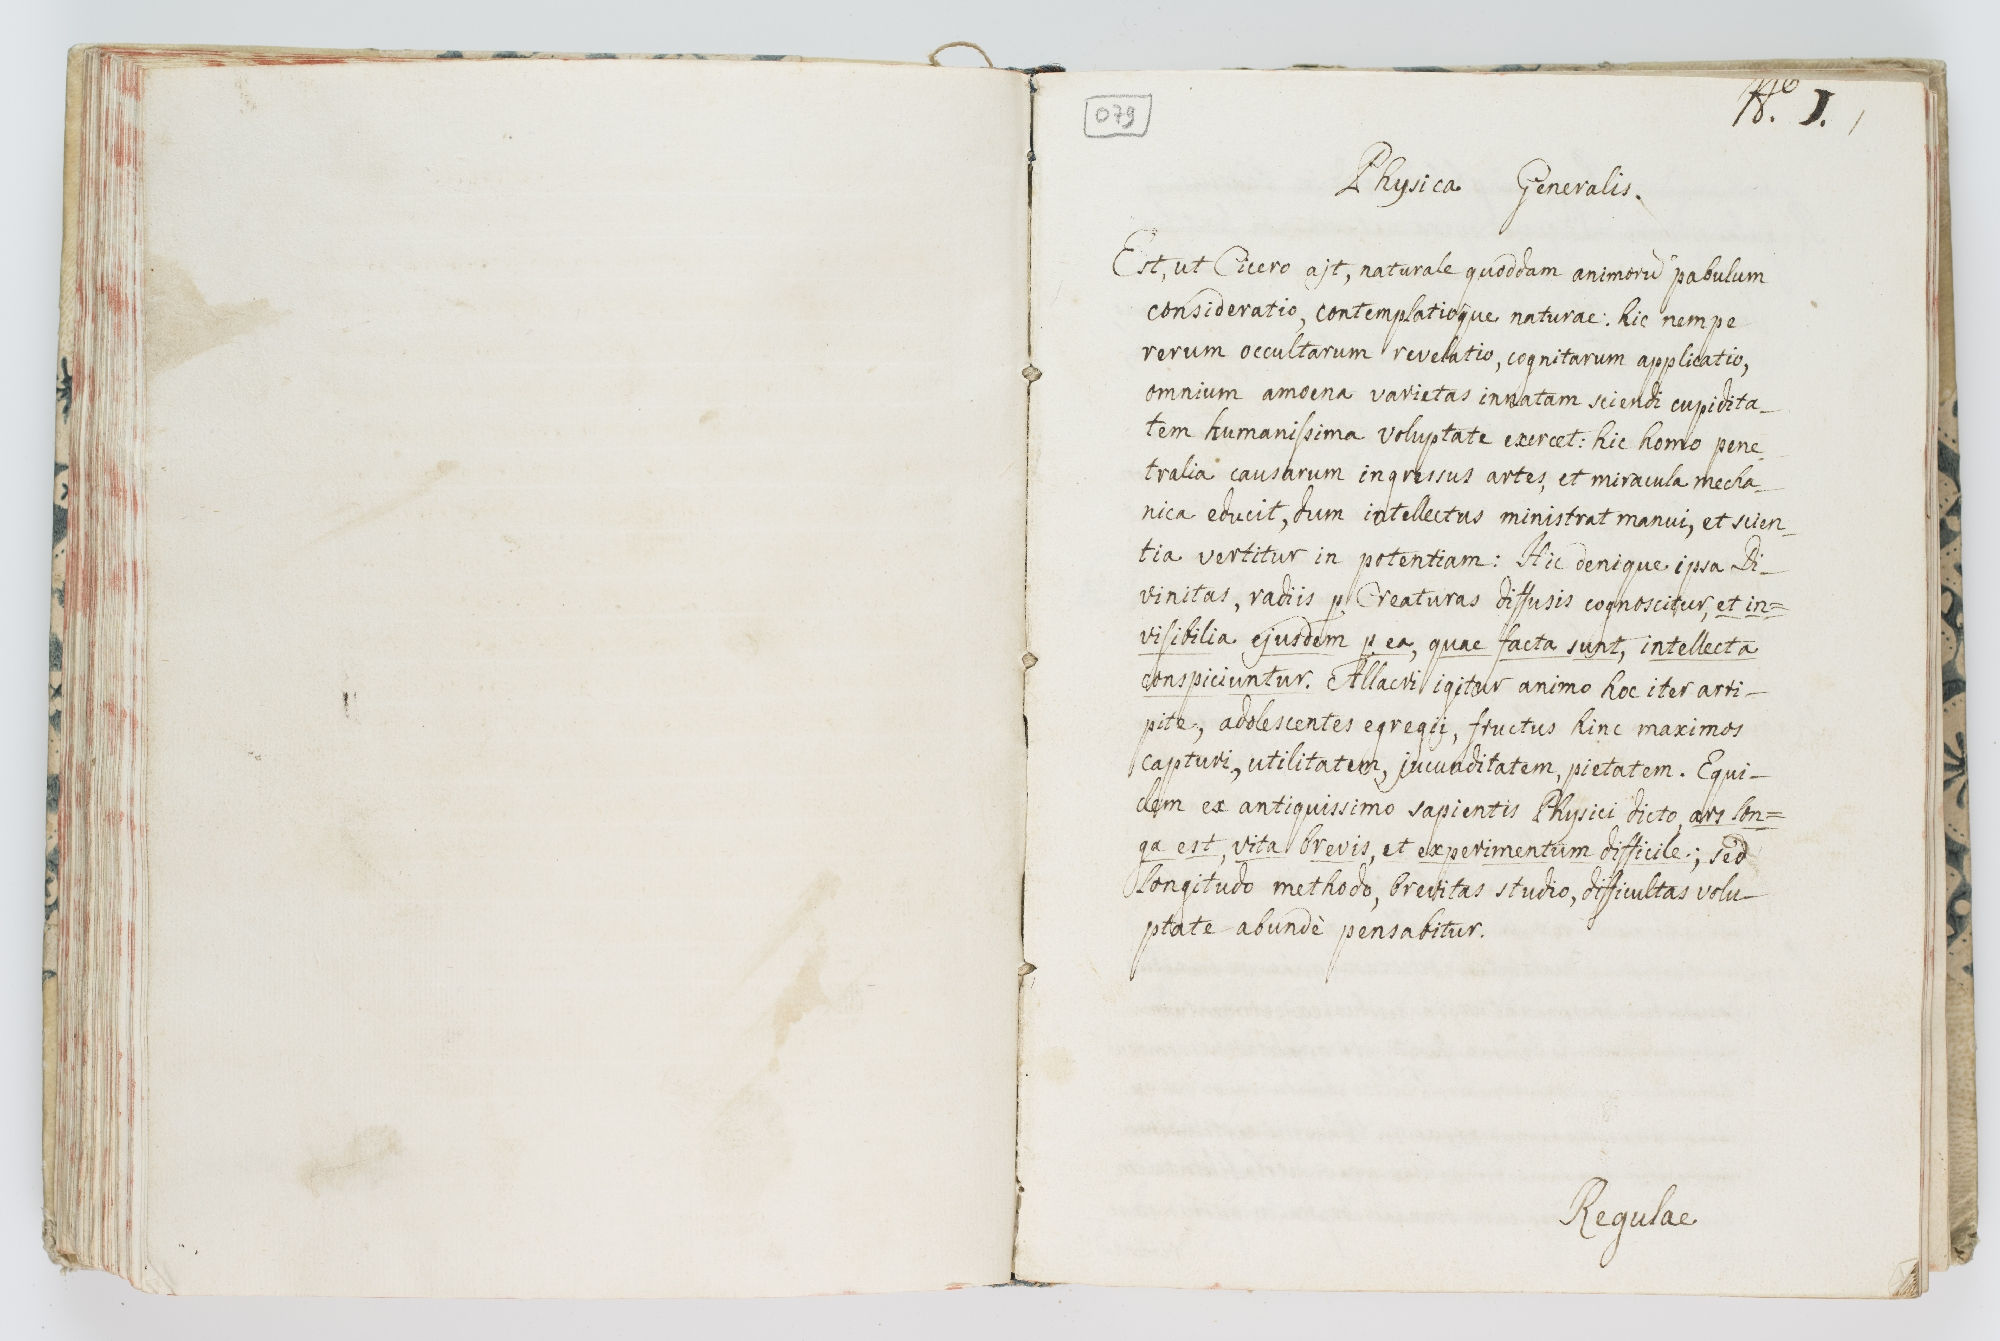 079
N.º 1. 1
Physica Generalis.
Est, ut Cicero ajt, naturale quoddam animorū pabulum
consideratio, contemplatioque naturae: hic nempe
rerum occultarum revelatio, cognitarum applicatio,
omnium amoena varietas innatam sciendi cupidita_
tem humanissima voluptate exercet: hic homo pene_
tralia causarum ingressus artes, et miracula mecha_
nica educit, dum intellectus ministrat manui, et scien_
tia vertitur in potentiam: Hic denique ipsa Di_
vinitas, radiis p Creaturas diffusis cognoscitur, et in=
visibilia ejusdem p ea, quae facta sunt, intellecta
conspiciuntur. Allacri igitur animo hoc iter arri_
pite, adolescentes egregij, fructus hinc maximos
capturi, utilitatem, jucunditatem, pietatem. Equi_
dem ex antiquissimo sapientis Physici dicto, ars lon=
ga est, vita brevis, et experimentum difficile.; sed
longitudo methodo, brevitas studio, difficultas volu_
ptate abundè pensabitur.
Regulae